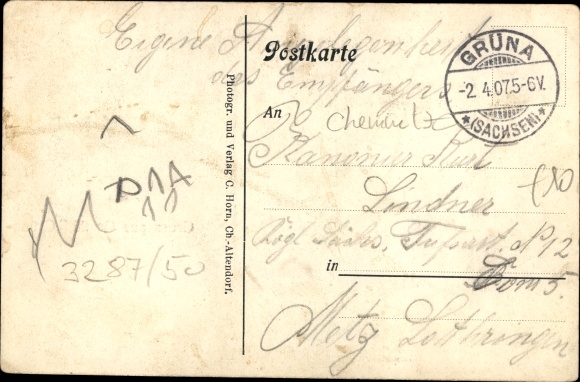 Eigene Angelegenheit
des Empfängers
Postkarte
GRÜNA
-2. 4.07.5-6V.
*(SACHSEN)*
An
Chemnitz
Kanonier Kurt
Lindner
Kögl. Sächs. Fußart. No 12
in
Metz Lothringen
Photogr. und Verlag C. Horn, Ch.-Altendorf.
3287/50